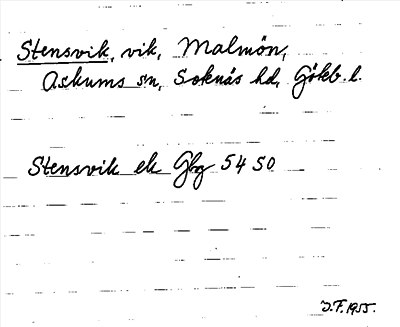 Stensvik, vik, Malmön,
Askums sn, Sotenäs hd, Götebl.
Stensvik ek Gbg 5450
J.F. 1955.